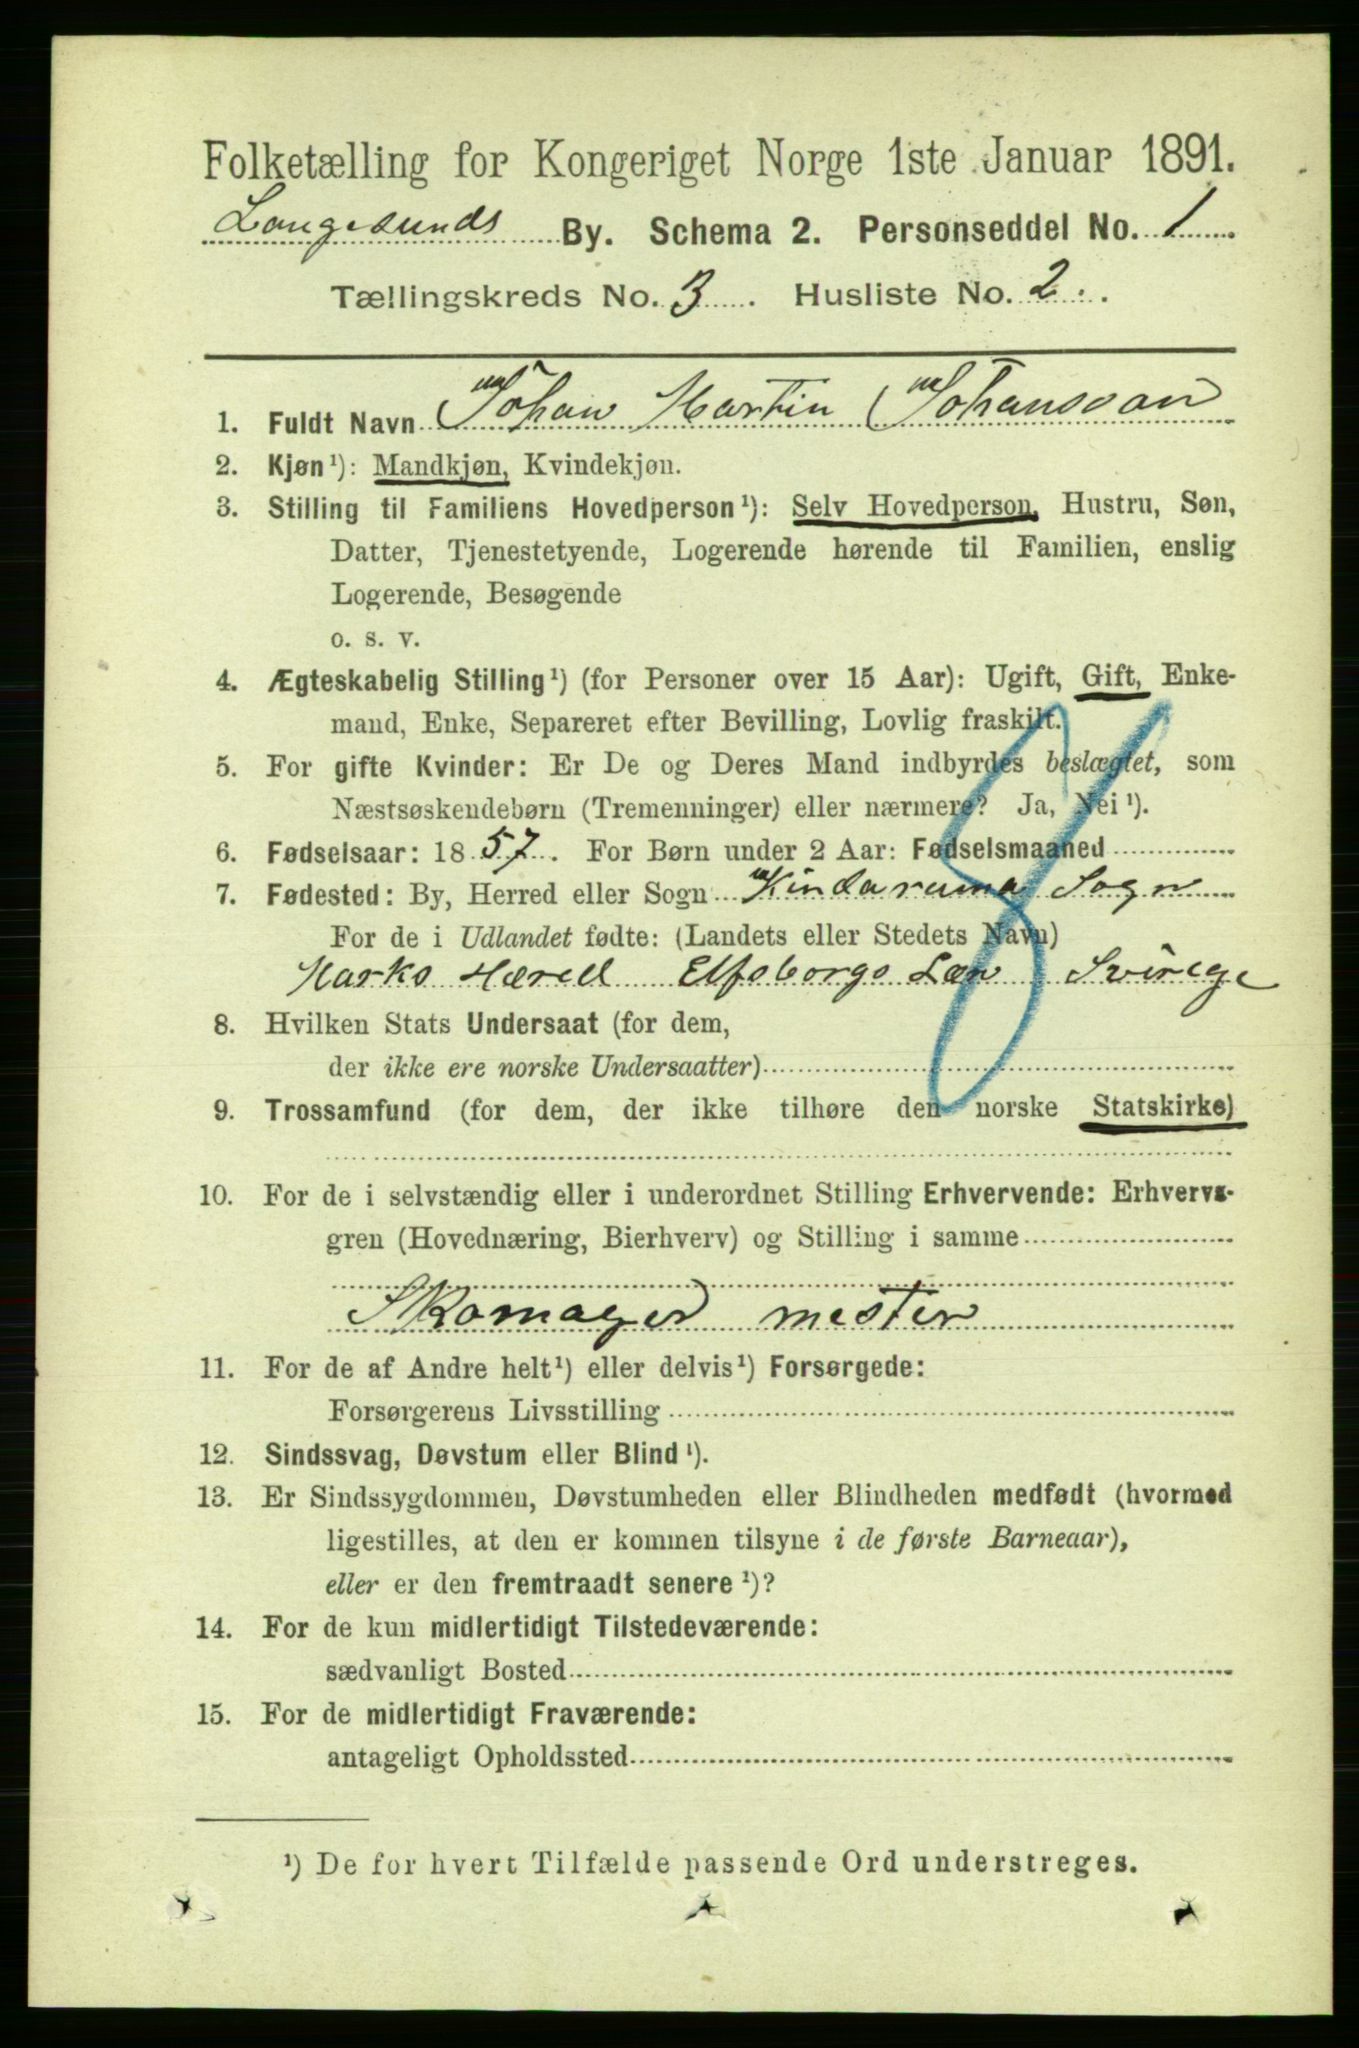 Folketælling for Kongeriget Norge 1ste Januar 1891.
Langesunds By. Schema 2. Personseddel No. 1
Tællingskreds No. 3. Husliste No. 2.
1. Fuldt Navn Johan Martin Johansson
2. Kjøn¹): Mandkjøn, Kvindekjøn.
3. Stilling til Familiens Hovedperson¹): Selv Hovedperson, Hustru, Søn,
Datter, Tjenestetyende, Logerende hørende til Familien, enslig
Logerende, Besøgende
o. s. v.
4. Ægteskabelig Stilling¹) (for Personer over 15 Aar): Ugift, Gift, Enke-
mand, Enke, Separeret efter Bevilling, Lovlig fraskilt.
5. For gifte Kvinder: Er De og Deres Mand indbyrdes beslægtet, som
Næstsøskendebørn (Tremenninger) eller nærmere? Ja, Nei¹).
6. Fødselsaar: 1857. For Børn under 2 Aar: Fødselsmaaned
7. Fødested: By, Herred eller Sogn Kindaruma Sogn
For de i Udlandet fødte: (Landets eller Stedets Navn)
Marks Hæred Elfsborgs Læn Svirege
8. Hvilken Stats Undersaat (for dem,
der ikke ere norske Undersaatter)
9. Trossamfund (for dem, der ikke tilhøre den norske Statskirke)
10. For de i selvstændig eller i underordnet Stilling Erhvervende: Erhvervs-
gren (Hovednæring, Bierhverv) og Stilling i samme
Skomager mester
11. For de af Andre helt¹) eller delvis¹) Forsørgede:
Forsørgerens Livsstilling
12. Sindssvag, Døvstum eller Blind¹).
13. Er Sindssygdommen, Døvstumheden eller Blindheden medfødt (hvormed
ligestilles, at den er kommen tilsyne i de første Barneaar),
eller er den fremtraadt senere¹)?
14. For de kun midlertidigt Tilstedeværende:
sædvanligt Bosted
15. For de midlertidigt Fraværende:
antageligt Opholdssted
¹) De for hvert Tilfælde passende Ord understreges.